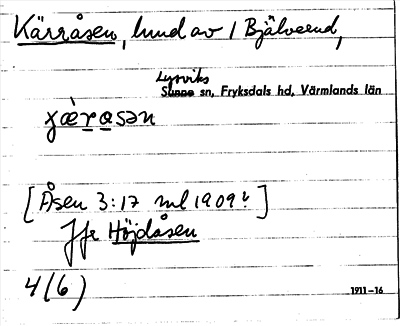 Kärråsen, lund av / Bjälverud,
Lysviks
Sunne sn, Fryksdals hd, Värmlands län
[Åsen 3:17 ml 1909?]
Jfr Höjdåsen
4(6)
1911–16